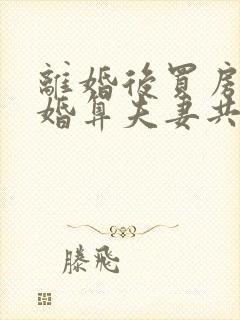 離婚後買房
婚算夫妻共
滕飛